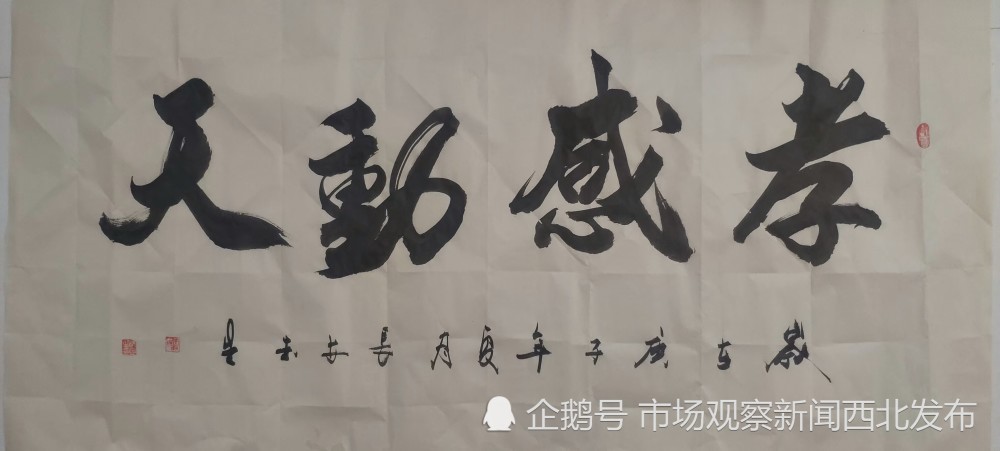 孝感動天
歲在庚子年夏月長安未是
企鹅号 市场观察新闻西北发布